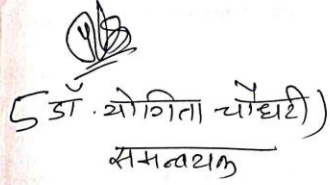 (डॉ. योगिता चौधरी)
समन्वयक